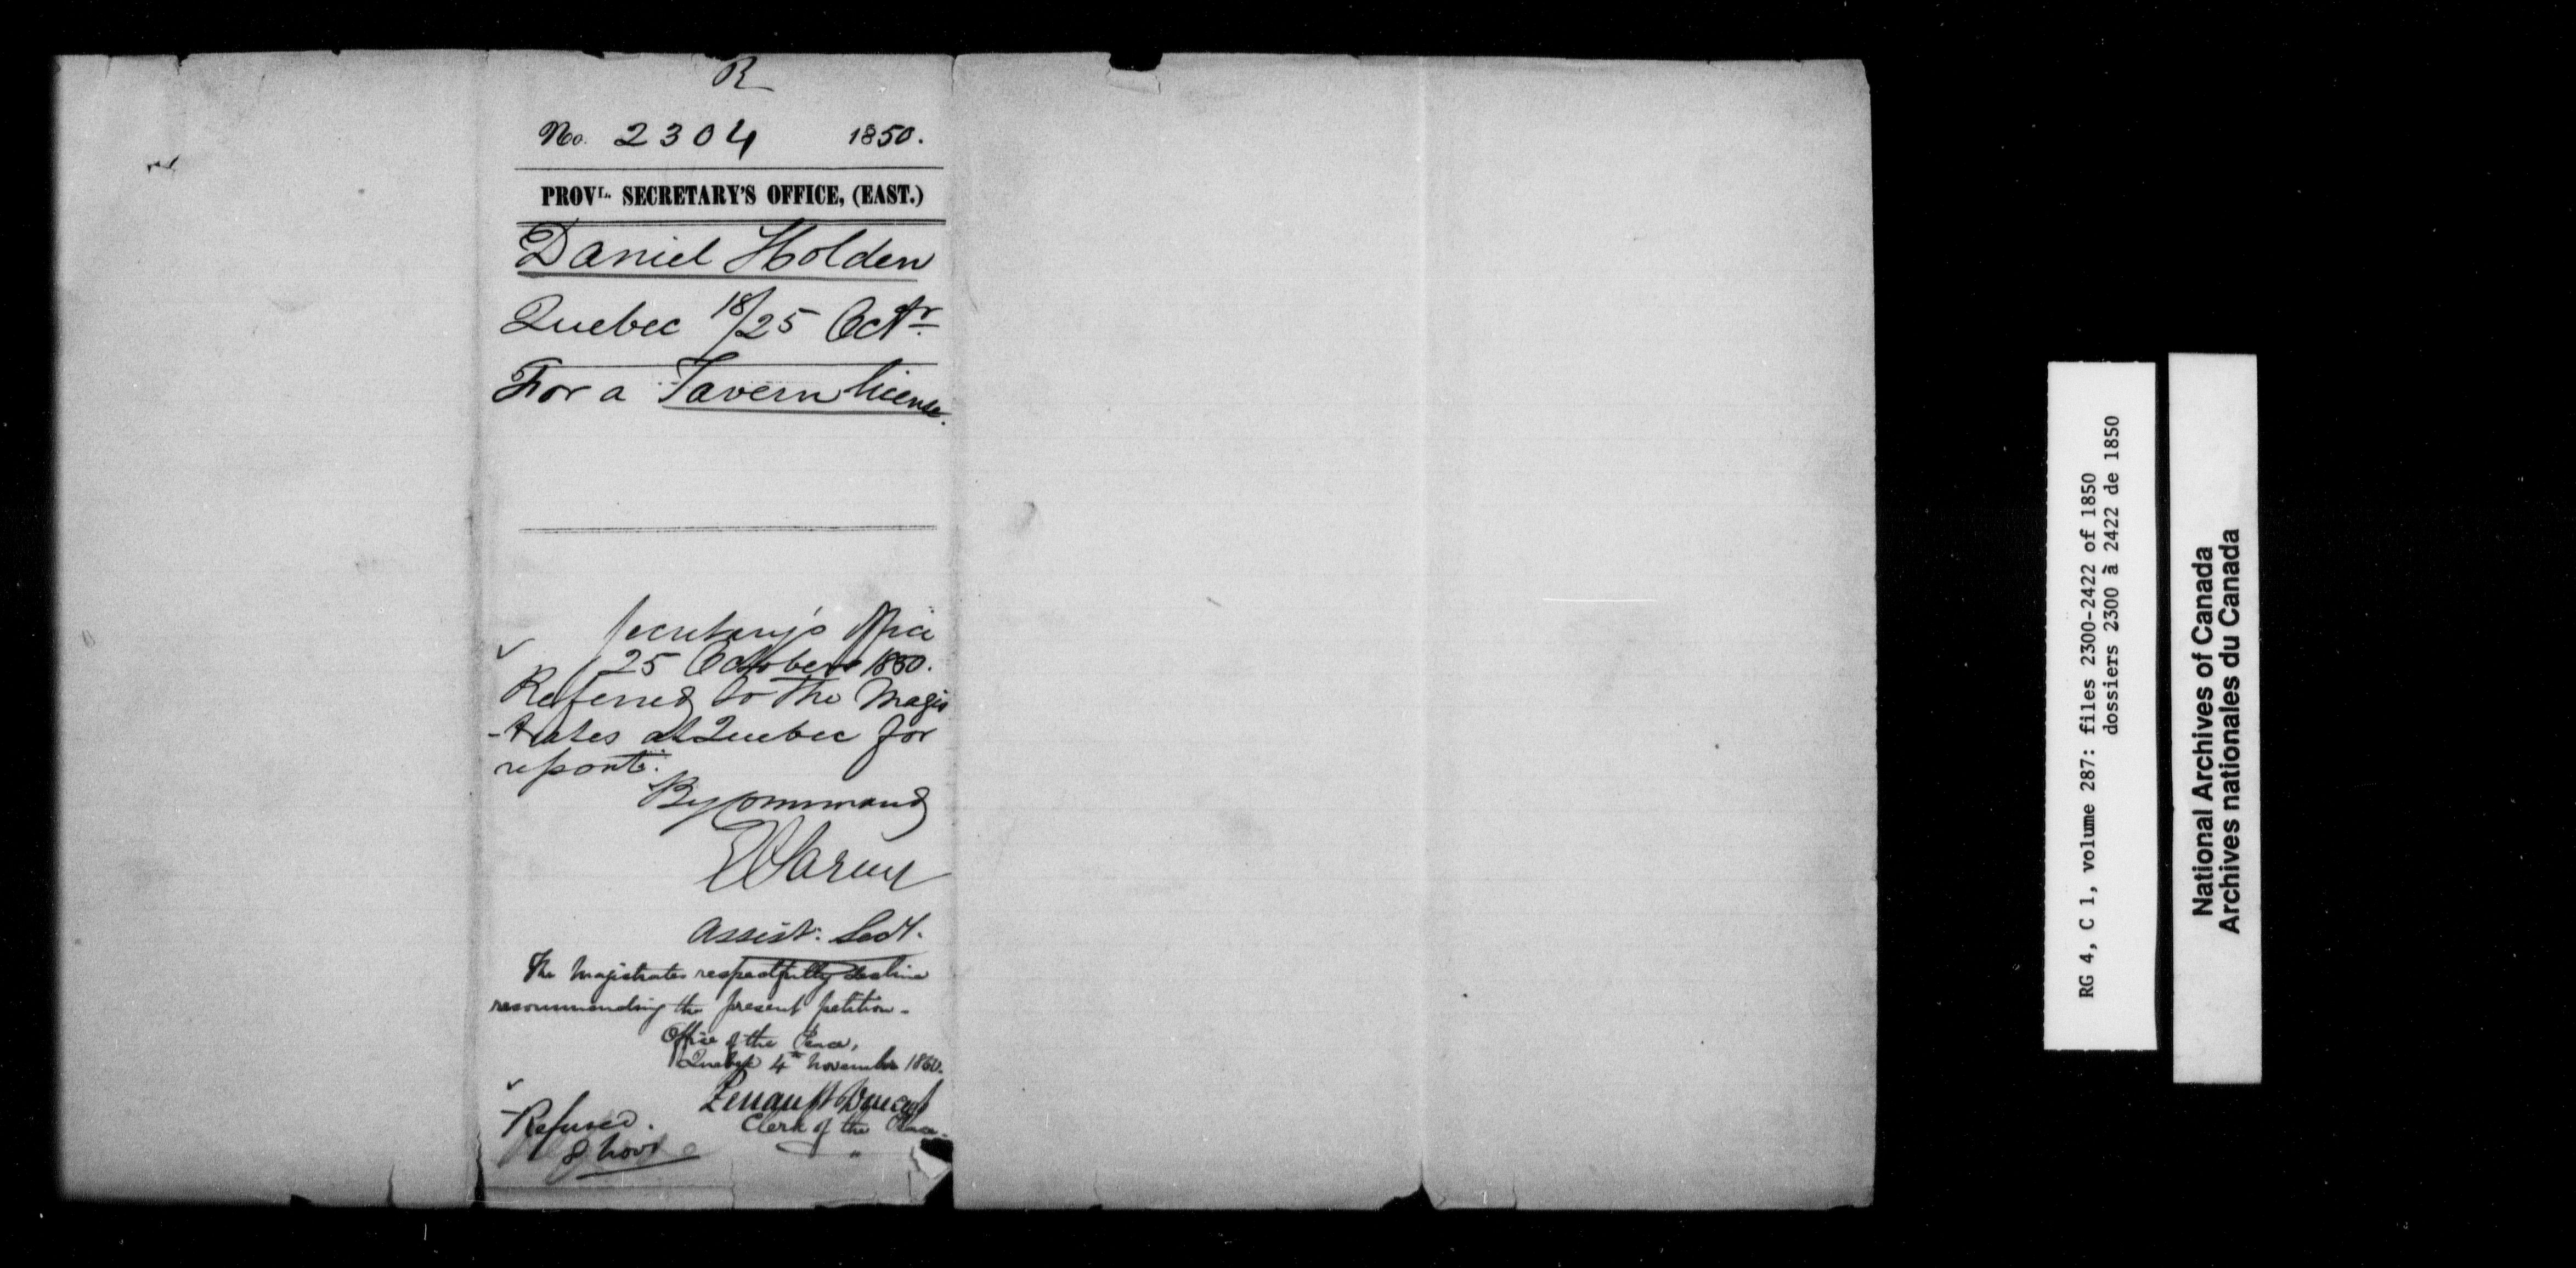 R
No. 2304 1850.
PROVL. SECRETARY'S OFFICE, (EAST.)
Daniel Holden
Quebec 18/25 Octr.
For a Tavern license.
Secretary's Office
25 October 1850.
Referred to the Magis
-trates at Quebec for
report.
By command
Assist. Secy.
The Magistrates respectfully decline
recommending the present petition.
Office of the Peace,
Quebec 4th November 1850.
Clerk of the Peace.
Refused.
8 Novr
RG 4, C 1, volume 287: files 2300-2422 of 1850
dossiers 2300 à 2422 de 1850
National Archives of Canada
Archives nationales du Canada